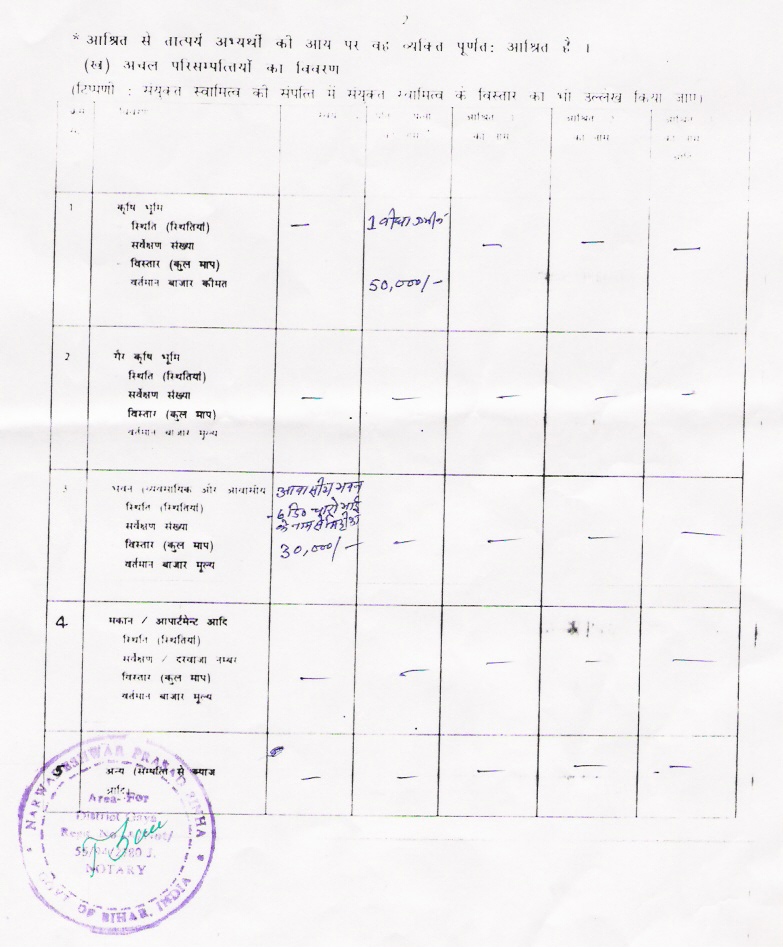 2
* आश्रित से तात्पर्य अभ्यर्थी की आय पर वह व्यक्ति पूर्णत: आश्रित है ।
(ख) अचल परिसम्पत्तियों का विवरण
(टिप्पणी : संयुक्त स्वामित्व की संपत्ति में संयुक्त स्वामित्व के विस्तार का भी उल्लेख किया जाए)
विवरण आश्रित आश्रित आश्रित
का नाम का नाम का नाम
1 कृषि भूमि
स्थिति (स्थितियां) — 1 बीघा जमीन
सर्वेक्षण संख्या — — —
विस्तार (कुल माप)
वर्तमान बाजार कीमत 50,000/-
2 गैर कृषि भूमि
स्थिति (स्थितियां)
सर्वेक्षण संख्या — — — — —
विस्तार (कुल माप)
वर्तमान बाजार मूल्य
3 भवन (व्यवसायिक और आवासीय आवासीय भवन
स्थिति (स्थितियां) - 6 डि० चारो भाई
सर्वेक्षण संख्या के नाम से
विस्तार (कुल माप) 30,000/- — — — —
वर्तमान बाजार मूल्य
4 मकान / आपार्टमेन्ट आदि
स्थिति (स्थितियां)
सर्वेक्षण / दरवाजा नम्बर
विस्तार (कुल माप) — — — — —
वर्तमान बाजार मूल्य
5 अन्य (सम्पत्ति से ब्याज — — — — —
आदि)
NARWADESHWAR PRASAD SINHA
Area-For
District Gaya
NOTARY
GOVT OF BIHAR, INDIA